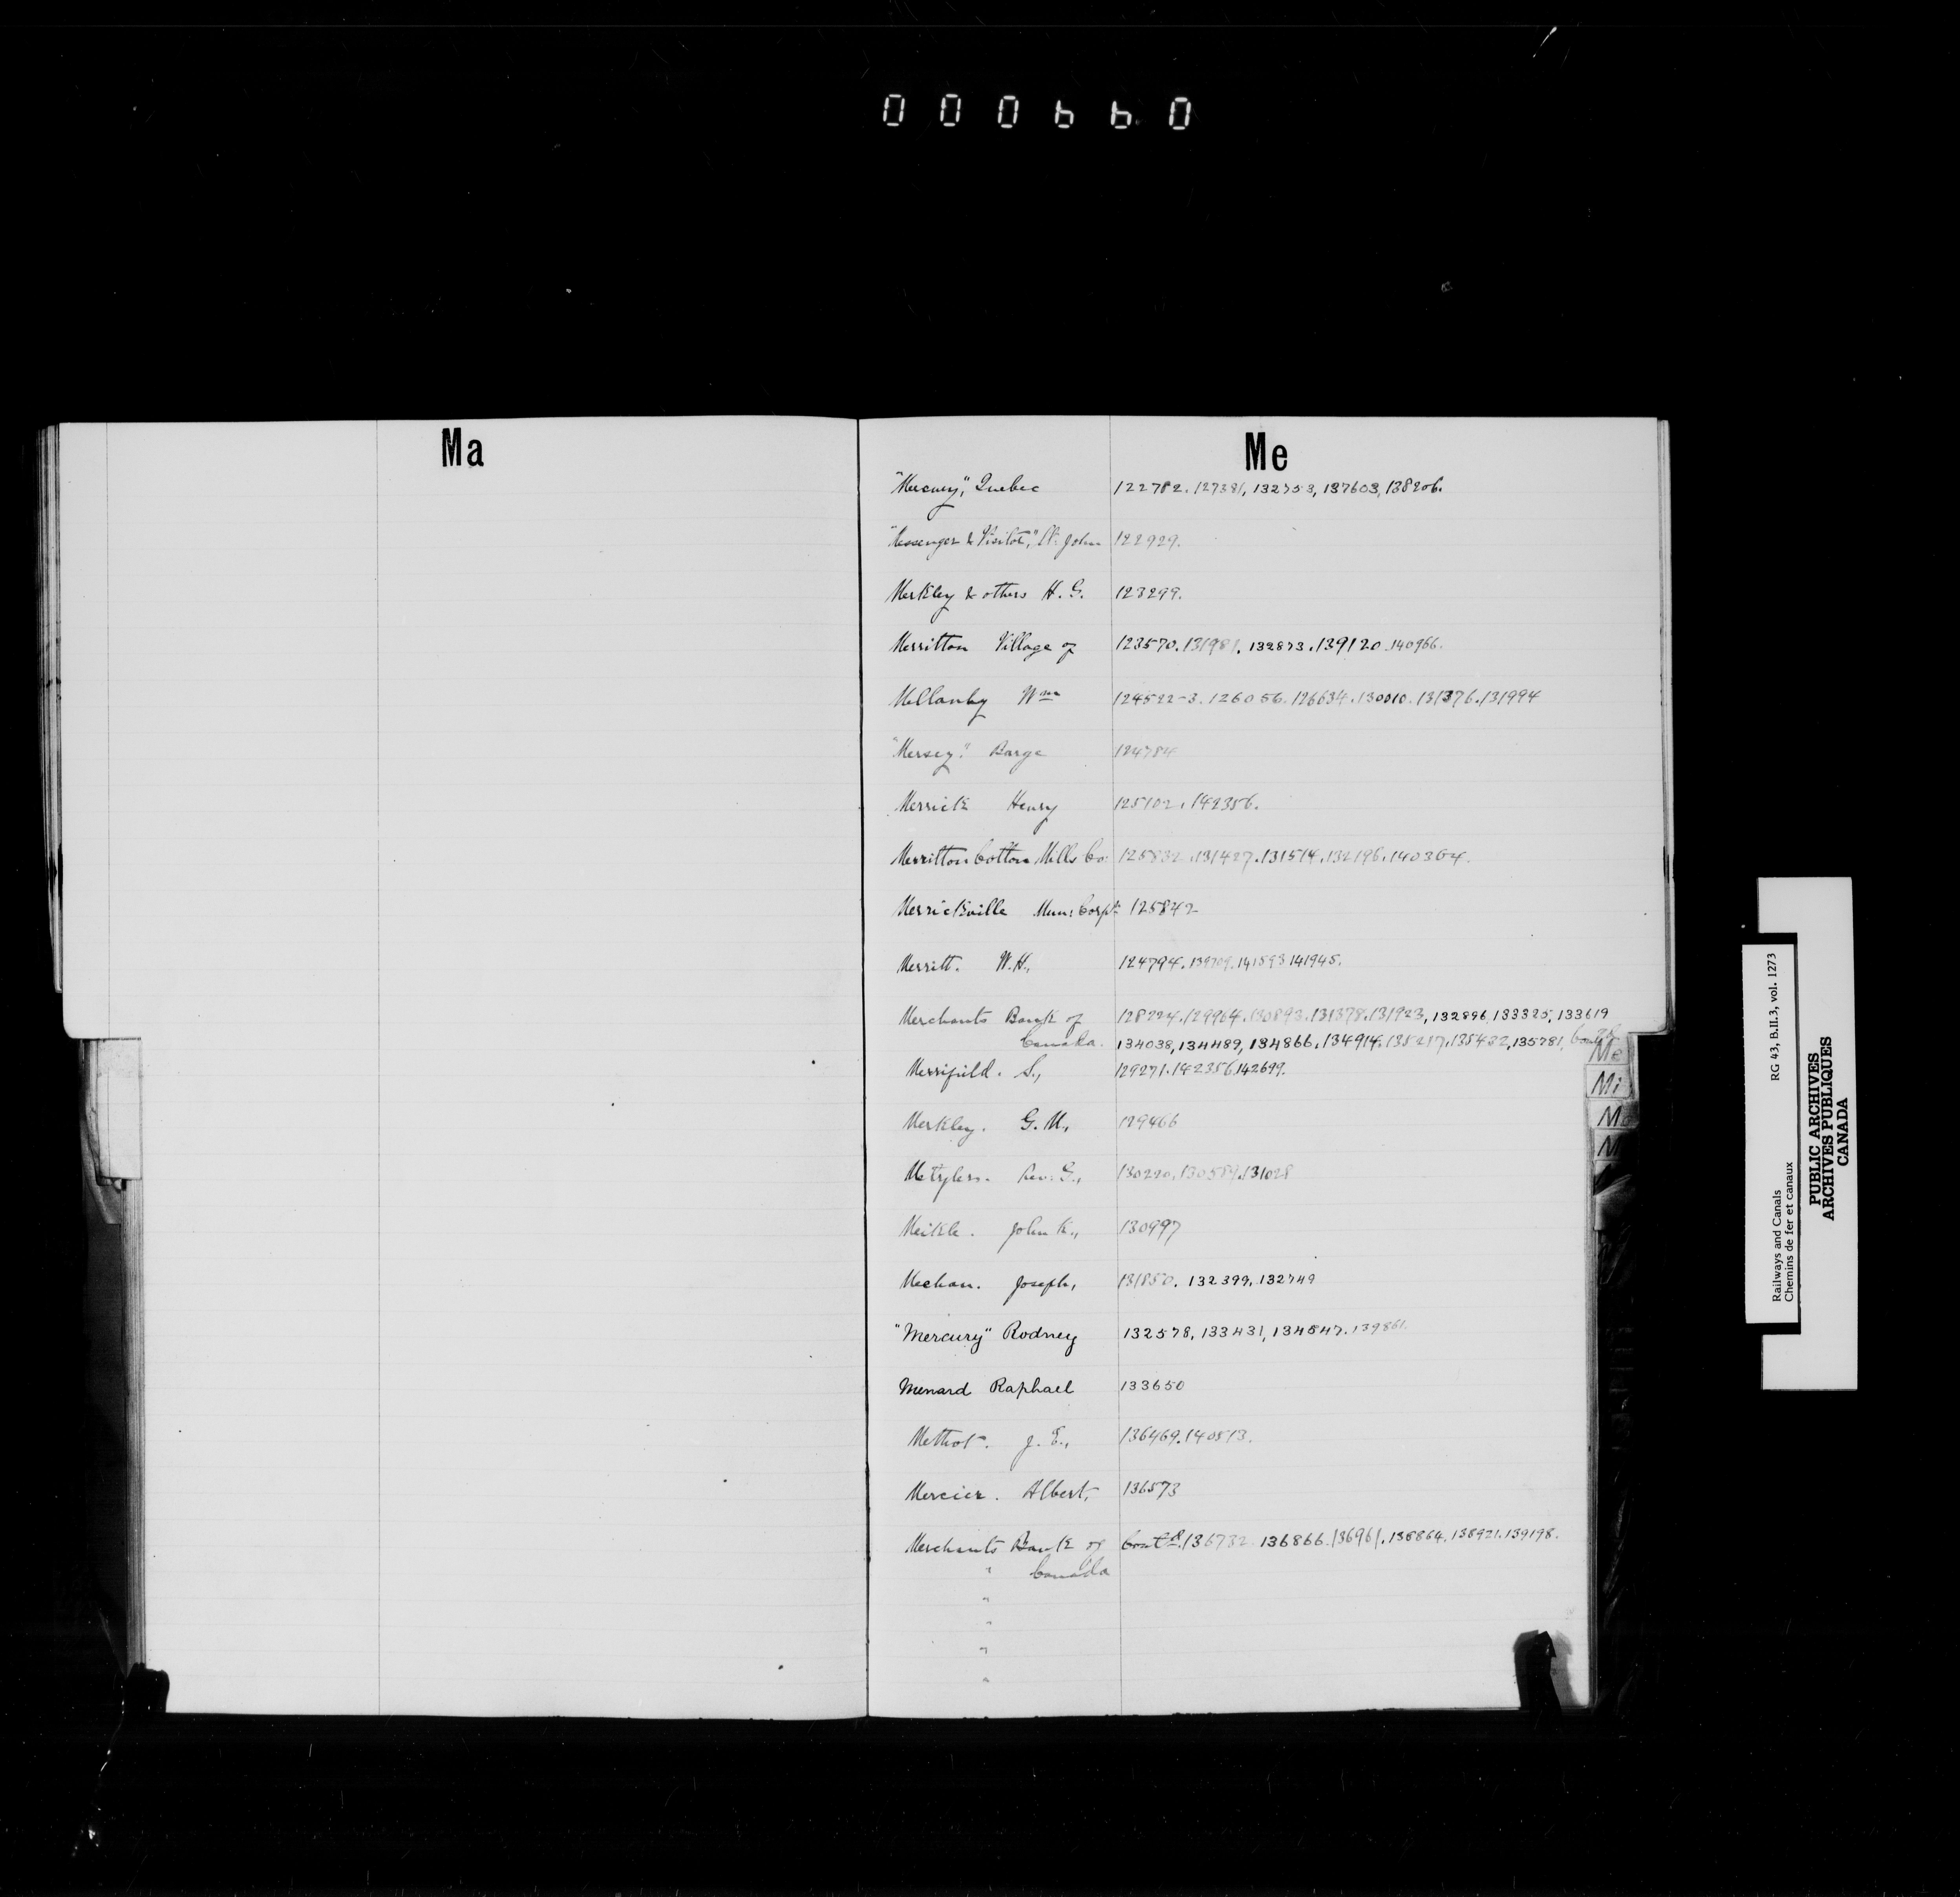 000660
Ma
Me
"Mercury", Quebec 122782. 127381, 132753, 137603, 138206.
"Messenger & Visitor," St. John 122929.
Merkley & others H. G. 123299.
Merritton Village of 123570. 131981. 132873. 139120. 140966.
Mellanby Wm 124522-3. 126056. 126634. 130010. 131376. 131994
"Mersey." Barge 124784
Merrick Henry 125102. 142356.
Merritton Cotton Mills Co: 125832. 131427. 131514. 132196. 140364.
Merrickville Mun: Corpn: 125842
Merritt. W. H., 124794. 139709. 141593 141945.
Merchants Bank of 128224. 129964. 130893. 131378. 131923, 132896, 133325, 133619
Canada. 134038, 134489, 134866. 134914. 135217. 135432, 135781, Contd
Merrifield. S., 129271. 142356. 142699.
Merkley. G. M., 129466
Metzlers. Rev: G., 130220. 130589. 131028
Meikle. John K., 130997
Meehan. Joseph, 131850. 132399, 132749
"Mercury" Rodney 132578, 133431, 134547. 139861.
Menard Raphael 133650
Methot. J. E., 136469. 140513.
Mercier. Albert, 136573
Merchants Bank of Contd. 136732. 136866. 136961. 138864. 138921. 139198.
" Canada
"
"
"
"
Me
Mi
Mc
Railways and Canals RG 43, B.II.3, vol. 1273
Chemins de fer et canaux
PUBLIC ARCHIVES
ARCHIVES PUBLIQUES
CANADA